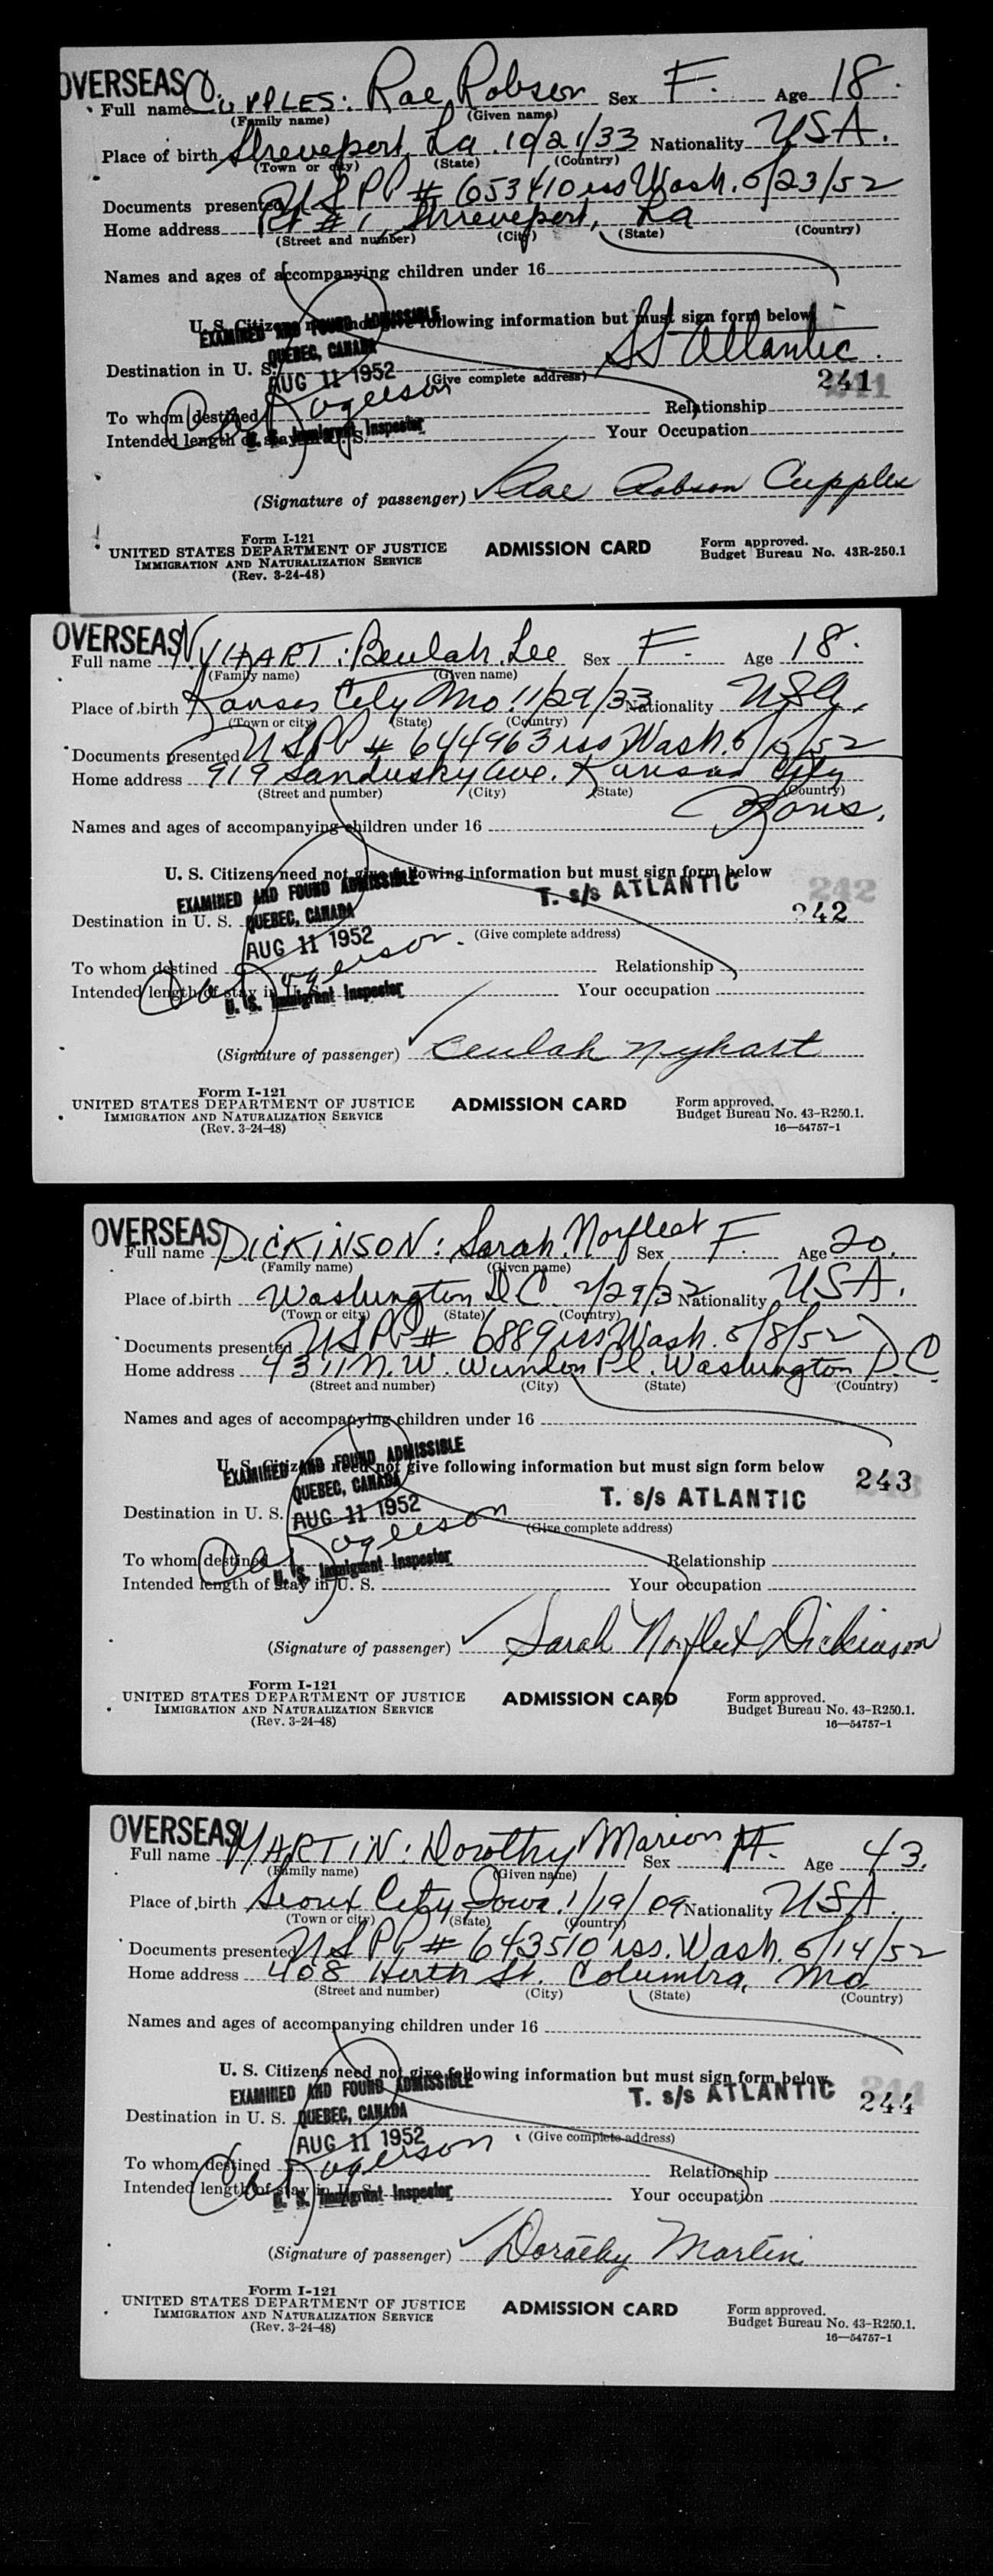 OVERSEAS
Full name CUPPLES: Rae Robson Sex F. Age 18.
(Family name) (Given name)
Place of birth Shreveport, La. 10/21/33 Nationality USA.
(Town or city) (State) (Country)
Documents presented USPP # 653410 iss Wash. 5/23/52
Home address Rt #1, Shreveport, La
(Street and number) (City) (State) (Country)
Names and ages of accompanying children under 16
U. S. Citizens need not give following information but must sign form below
EXAMINED AND FOUND ADMISSIBLE
QUEBEC, CANADA
SS Atlantic.
Destination in U. S.
AUG 11 1952 (Give complete address) 241
To whom destined Relationship
Intended length of stay in U. S. Your Occupation
U. S. Immigrant Inspector
(Signature of passenger) Rae Robson Cupples
Form I-121
UNITED STATES DEPARTMENT OF JUSTICE
IMMIGRATION AND NATURALIZATION SERVICE
(Rev. 3-24-48)
ADMISSION CARD
Form approved.
Budget Bureau No. 43R-250.1
OVERSEAS
Full name NYHART: Beulah Lee Sex F. Age 18.
(Family name) (Given name)
Place of birth Kansas City Mo. 11/29/33 Nationality USA.
(Town or city) (State) (Country)
Documents presented USPP # 644963 iss Wash. 5/15/52
Home address 919 Sandusky Ave. Kansas City
(Street and number) (City) (State) (Country)
Kans.
Names and ages of accompanying children under 16
U. S. Citizens need not give following information but must sign form below
EXAMINED AND FOUND ADMISSIBLE T. s/s ATLANTIC
242
Destination in U. S. QUEBEC, CANADA 242
AUG 11 1952 (Give complete address)
To whom destined Relationship
Intended length of stay in U. S. Your occupation
U. S. Immigrant Inspector
(Signature of passenger) Beulah Nyhart
Form I-121
UNITED STATES DEPARTMENT OF JUSTICE
IMMIGRATION AND NATURALIZATION SERVICE
(Rev. 3-24-48)
ADMISSION CARD
Form approved.
Budget Bureau No. 43-R250.1.
16—54757-1
OVERSEAS
Full name DICKINSON: Sarah Norfleet Sex F. Age 20.
(Family name) (Given name)
Place of birth Washington D.C. 2/29/32 Nationality USA.
(Town or city) (State) (Country)
Documents presented USPP # 6889 iss Wash. 5/8/52
Home address 4311 N.W. Pl. Washington D.C.
(Street and number) (City) (State) (Country)
Names and ages of accompanying children under 16
U. S. Citizens need not give following information but must sign form below 243
EXAMINED AND FOUND ADMISSIBLE
QUEBEC, CANADA T. s/s ATLANTIC
Destination in U. S. AUG 11 1952
(Give complete address)
To whom destined Relationship
U. S. Immigrant Inspector
Intended length of stay in U. S. Your occupation
(Signature of passenger) Sarah Norfleet Dickinson
Form I-121
UNITED STATES DEPARTMENT OF JUSTICE
IMMIGRATION AND NATURALIZATION SERVICE
(Rev. 3-24-48)
ADMISSION CARD
Form approved.
Budget Bureau No. 43-R250.1.
16—54757-1
OVERSEAS
Full name MARTIN: Dorothy Marion Sex F. Age 43.
(Family name) (Given name)
Place of birth Sioux City Iowa. 1/19/09 Nationality USA.
(Town or city) (State) (Country)
Documents presented USPP # 643510 iss. Wash. 5/14/52
Home address 408 Hirth St. Columbia, Mo
(Street and number) (City) (State) (Country)
Names and ages of accompanying children under 16
U. S. Citizens need not give following information but must sign form below
EXAMINED AND FOUND ADMISSIBLE T. s/s ATLANTIC 244
Destination in U. S. QUEBEC, CANADA
AUG 11 1952 (Give complete address)
To whom destined Relationship
Intended length of stay in U. S. Your occupation
U. S. Immigrant Inspector
(Signature of passenger) Dorothy Martin
Form I-121
UNITED STATES DEPARTMENT OF JUSTICE
IMMIGRATION AND NATURALIZATION SERVICE
(Rev. 3-24-48)
ADMISSION CARD
Form approved.
Budget Bureau No. 43-R250.1.
16—54757-1